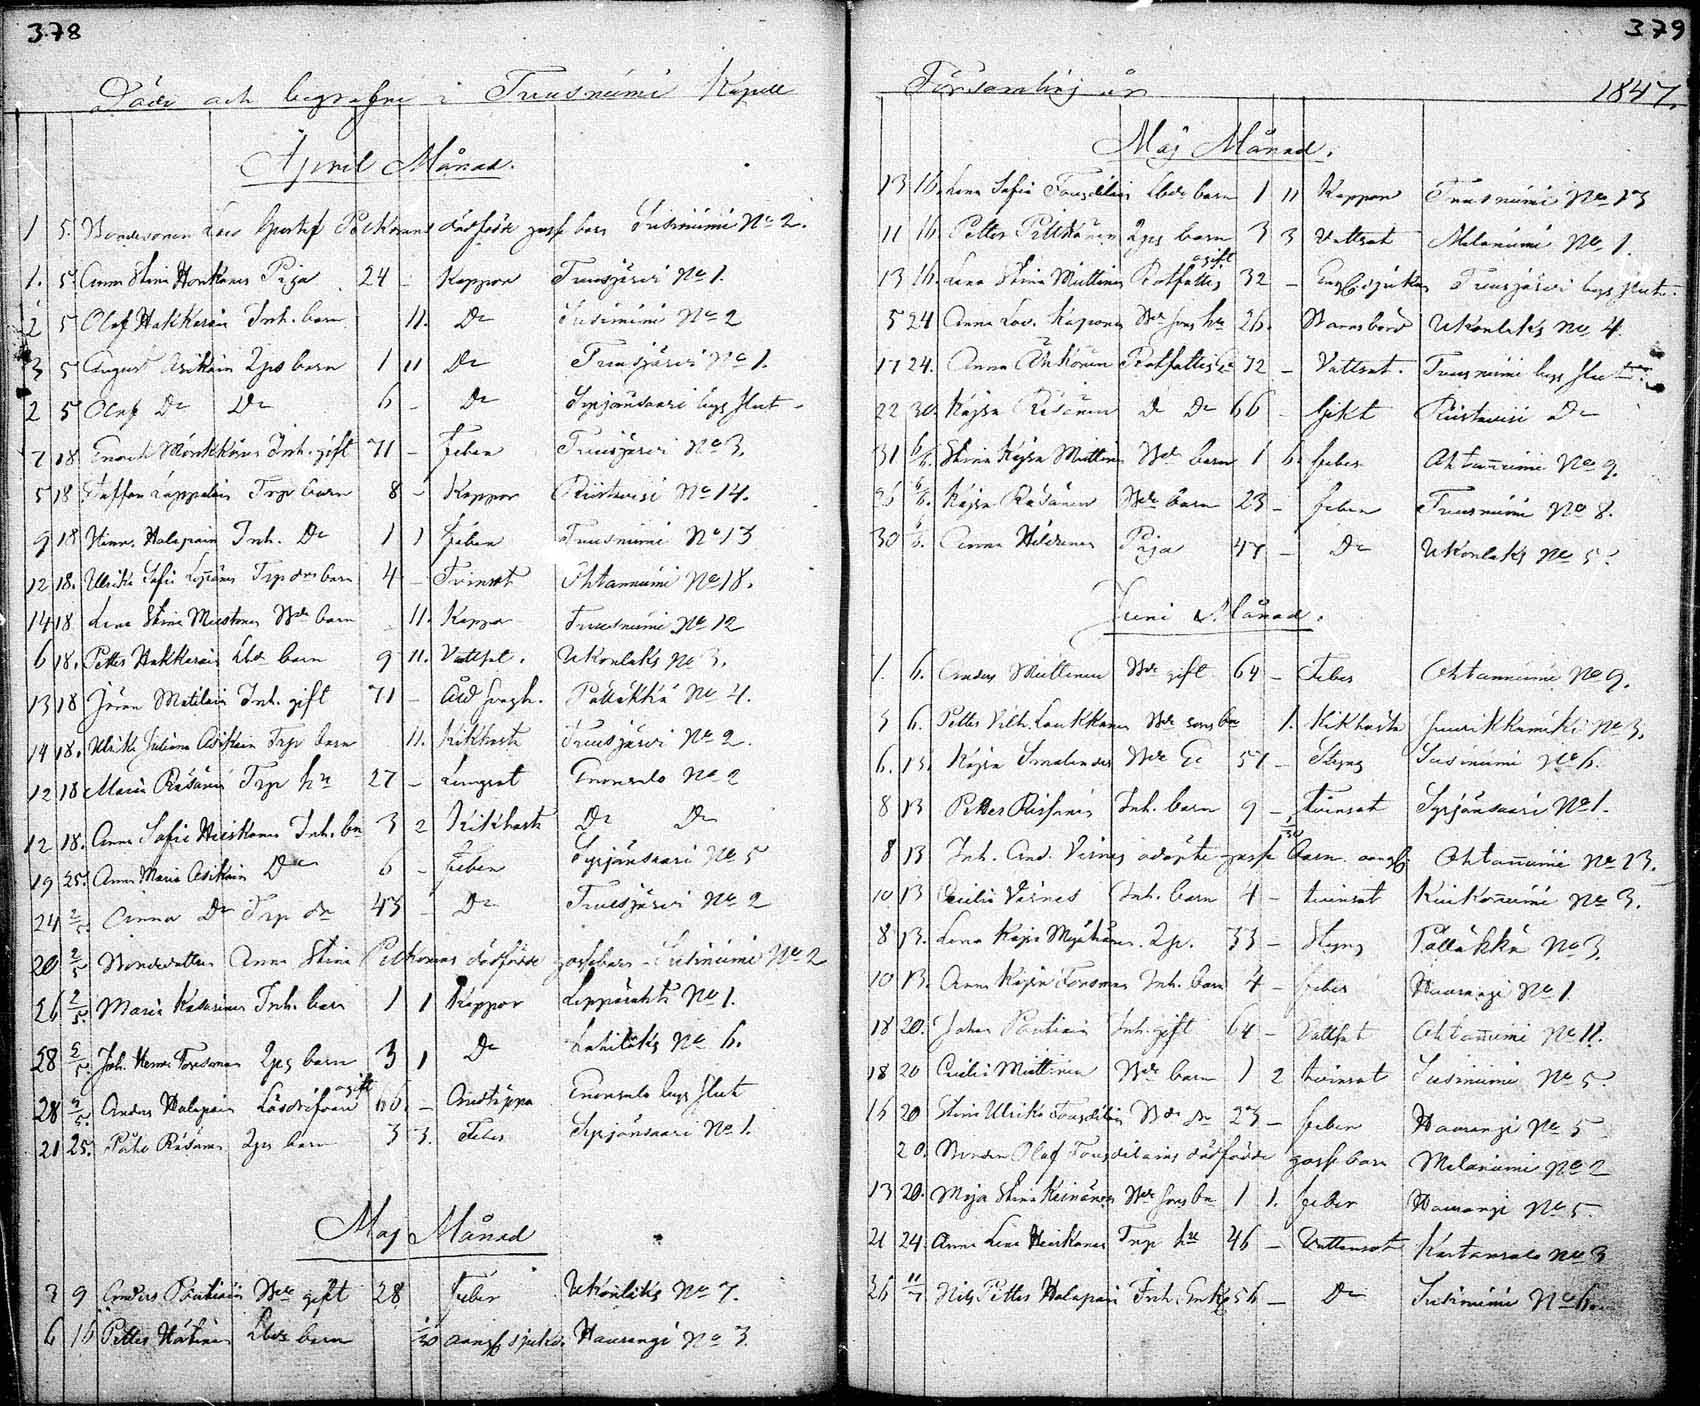 378
Döde och begrafne i Tuusniemi Kapell
April Månad.
1 5. Bondesonen Lars Gustaf Pitkänens dödfödde gosse barn Susiniemi No 2.
1. 5. Anna Stina Honkanen Piga 24 - Koppor Tuusjärvi No 1.
2 5 Olof Hakkarain Inh. barn 11. Do Susiniemi No 2
3 5 August Asikain 2ps barn 1 11 Do Tuusjärvi No 1.
2 5 Olof Do Do 6 - Do Syrjänsaari bys hut -
7 18 Enoch Mönkkönen Inh. gift 71 - Feber Tuusjärvi No 3.
5 18 Staffan Lappalain Trp barn 8 - Koppor Riistavesi No 14.
9 18 Hinr. Halapain Inh. Do 1 1 Feber Tuusniemi No 13
12 18. Ulrika Sofia Trp drs barn 4 - Tvinsot Ohtaniemi No 18.
14 18 Lena Stina Miettinen Bde barn 11. Koppor Tuusniemi No 12
6 18. Petter Hakkarain Lbde barn 9 11. Vattsot. Ukonlaks No 3.
13 18 Jöran Matilain Inh. gift 71 - Åld svagh. Pälläkkä No 4.
14 18. Ulrika Juliana Asikain Trp barn 11. Kikhosta Tuusjärvi No 2.
12 18 Maria Räsänen Trp hu 27 - Lungsot Enonsalo No 2
12 18. Anna Sofia Heiskanen Inh. bn 3 2 Kikhosta Do Do
19 25. Anna Maria Asikain Do 6 - Feber Syrjänsaari No 5
24 2/5. Anna Do Trp dr 43 - Do Tuusjärvi No 2
20 2/5 Bondedottren Anna Stina Pitkänens dödfödde gossebarn - Susiniemi No 2
26 2/5. Maria Kasurinen Inh. barn 1 1 Koppor Leppäranta No 1.
28 2/5. Joh. Henr. Forsman 2ps barn 3 1 Do Lahilaks No 6.
28 2/5. Anders Halapain Lösdrifvare ogift 66. - Andtäppa Enonsalo bys hut
21 25. Påhl Räsänen 2ps barn 3 3. Feber Syrjänsaari No 1.
Maj Månad
3 9 Anders Pöntinen Bde gift 28 Feber Ukonlaks No 7.
6 16 Petter Hätinen Lbde barn 1/30 okänd sjukd. Haurangi No 3.
379
Församling år 1847.
Maj Månad.
13 16. Lena Sofia Tougdilain Lbde barn 1 11 Koppor Tuusniemi No 13
11 16. Petter Pitkänen 2ps barn 3 3 Vattsot Melaniemi No 1.
13 16. Lena Stina Miettinen Rotfattig ogift 32 - Tuusjärvi bys hut.
5 24 Anna Lov. Kaponen Bde sons hu 26. Barnsbörd Ukonlaks No 4.
17 24. Anna Rotfattig 72 - Vattsot. Tuusniemi bys hut
22 30. Kajsa Räsänen Do Do 66 - Gikt Riistavesi Do
31 6/6. Stina Kajsa Miettinen Bde barn 1 6. Feber Ohtaniemi No 9.
26 6/6. Kajsa Räsänen Bde barn 23 - Feber Tuusniemi No 8.
30 6/6. Anna Heldinen Piga 47 - Do Ukonlaks No 5.
Juni Månad.
1. 6. Anders Miettinen Bde gift 64 - Feber Ohtaniemi No 9.
3 6. Petter Vilh. Laukkanen Bde sons bn 1. Kikhosta Juurikkamäki No 3.
6. 13. Kajsa Smalander Bde E: 57 - Styng Susiniemi No 6.
8 13 Petter Räisänen Inh. barn 9 - Tvinsot Syrjänsaari No 1.
8 13 Inh. And. Virnes odöpte gosse barn 1/30 Ohtaniemi No 23.
10 13 Cecilia Virnes Inh. barn 4 - tvinsot Kiukoniemi No 3.
8 13. Lena Kajsa Myöhänen 2p. 33 - Styng Pälläkkä No 3.
10 13. Anna Kajsa Forsman Inh. barn 4 - Feber Haurangi No 1.
18 20. Johan Pöntinen Inh. gift 64 - Vattsot Ohtaniemi No 11.
18 20 Cecilia Miettinen Bde barn 1 2 tvinsot Susiniemi No 5.
16 20 Stina Ulrika Tougdilain Bde dr 23 - Feber Haurangi No 5
20. Bonden Olof Tougdilains dödfödde gosse barn Melaniemi No 2
13 20. Maja Stina Keinänen Bde sons bn 1 1. Feber Haurangi No 5.
21 24. Anna Lena Heiskanen Trp hu 46 - Vattensot Kartansalo No 3
26 11/7 Nils Petter Halapain Inh. Enkl 56 - Do Susiniemi No 6